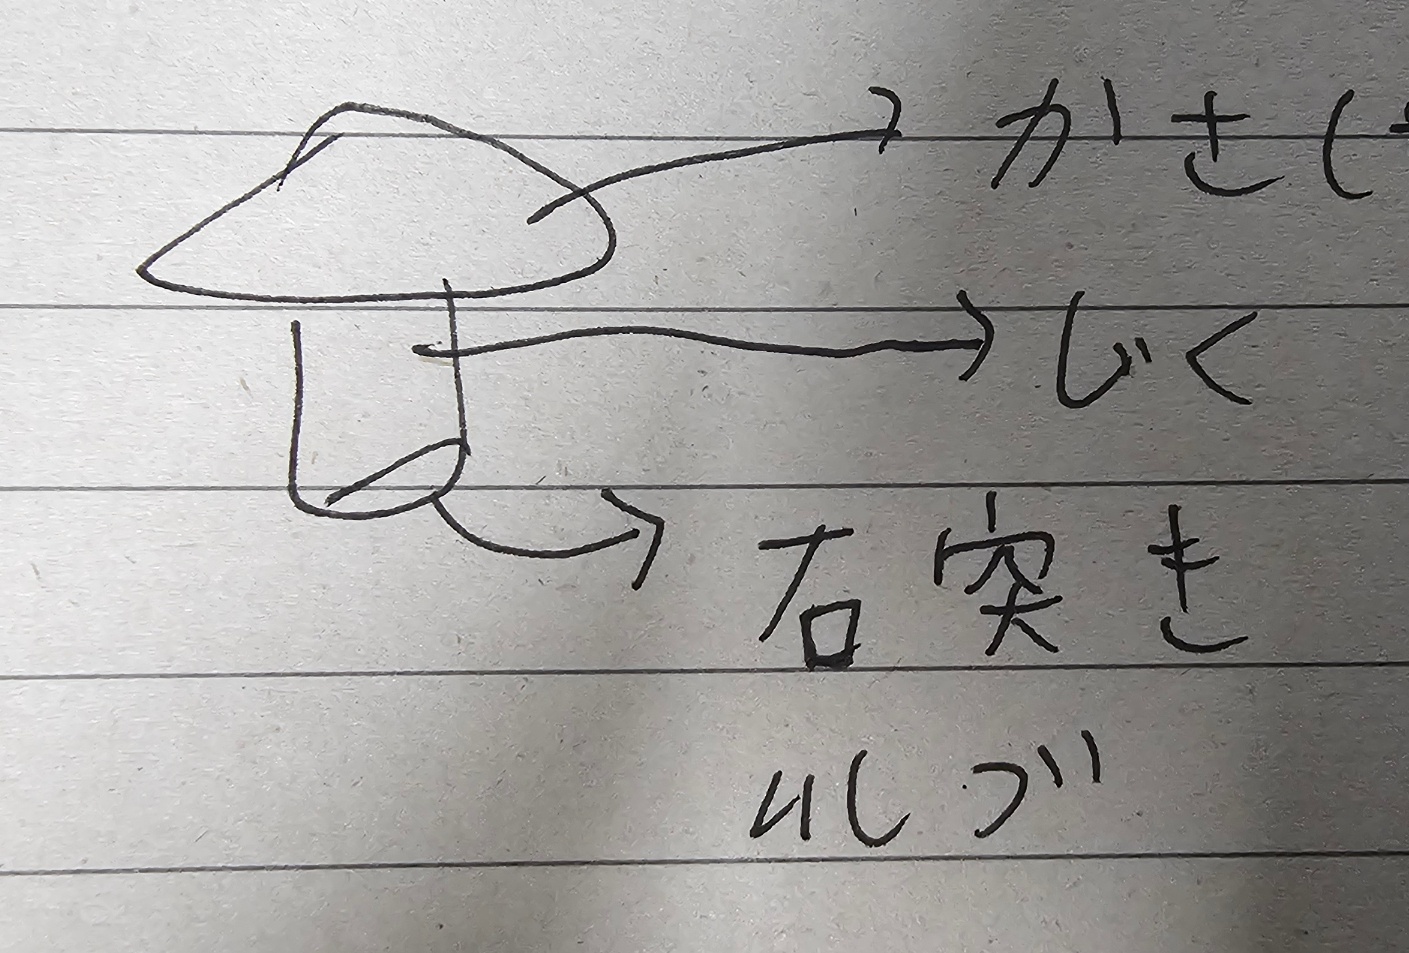 かさ(
じく
石突き
いしづ